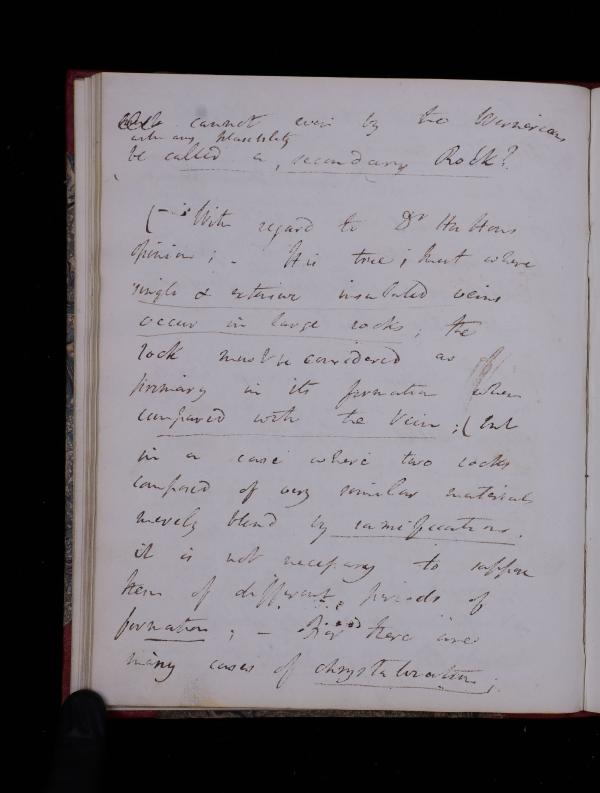 cannot even by the Wernerians
with any plausibility
be called a secondary Rock?.
(– With regard to Dr Huttons
opinion; – It is true; that where
single & extensive insulated veins
occur in large rocks; the
rock must be considered as
primary in its formation when
compared with the Vein; (but
in a case where two rocks
composed of very similar materials
merely blend by ramifications.
it is not necessary to suppose
them of different periods of
formation; – For there are
many cases of chrystalization;